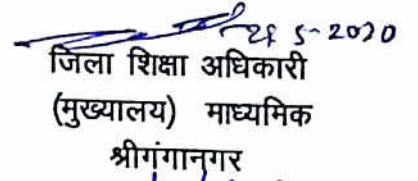 26 5-2020
जिला शिक्षा अधिकारी
(मुख्यालय) माध्यमिक
श्रीगंगानगर